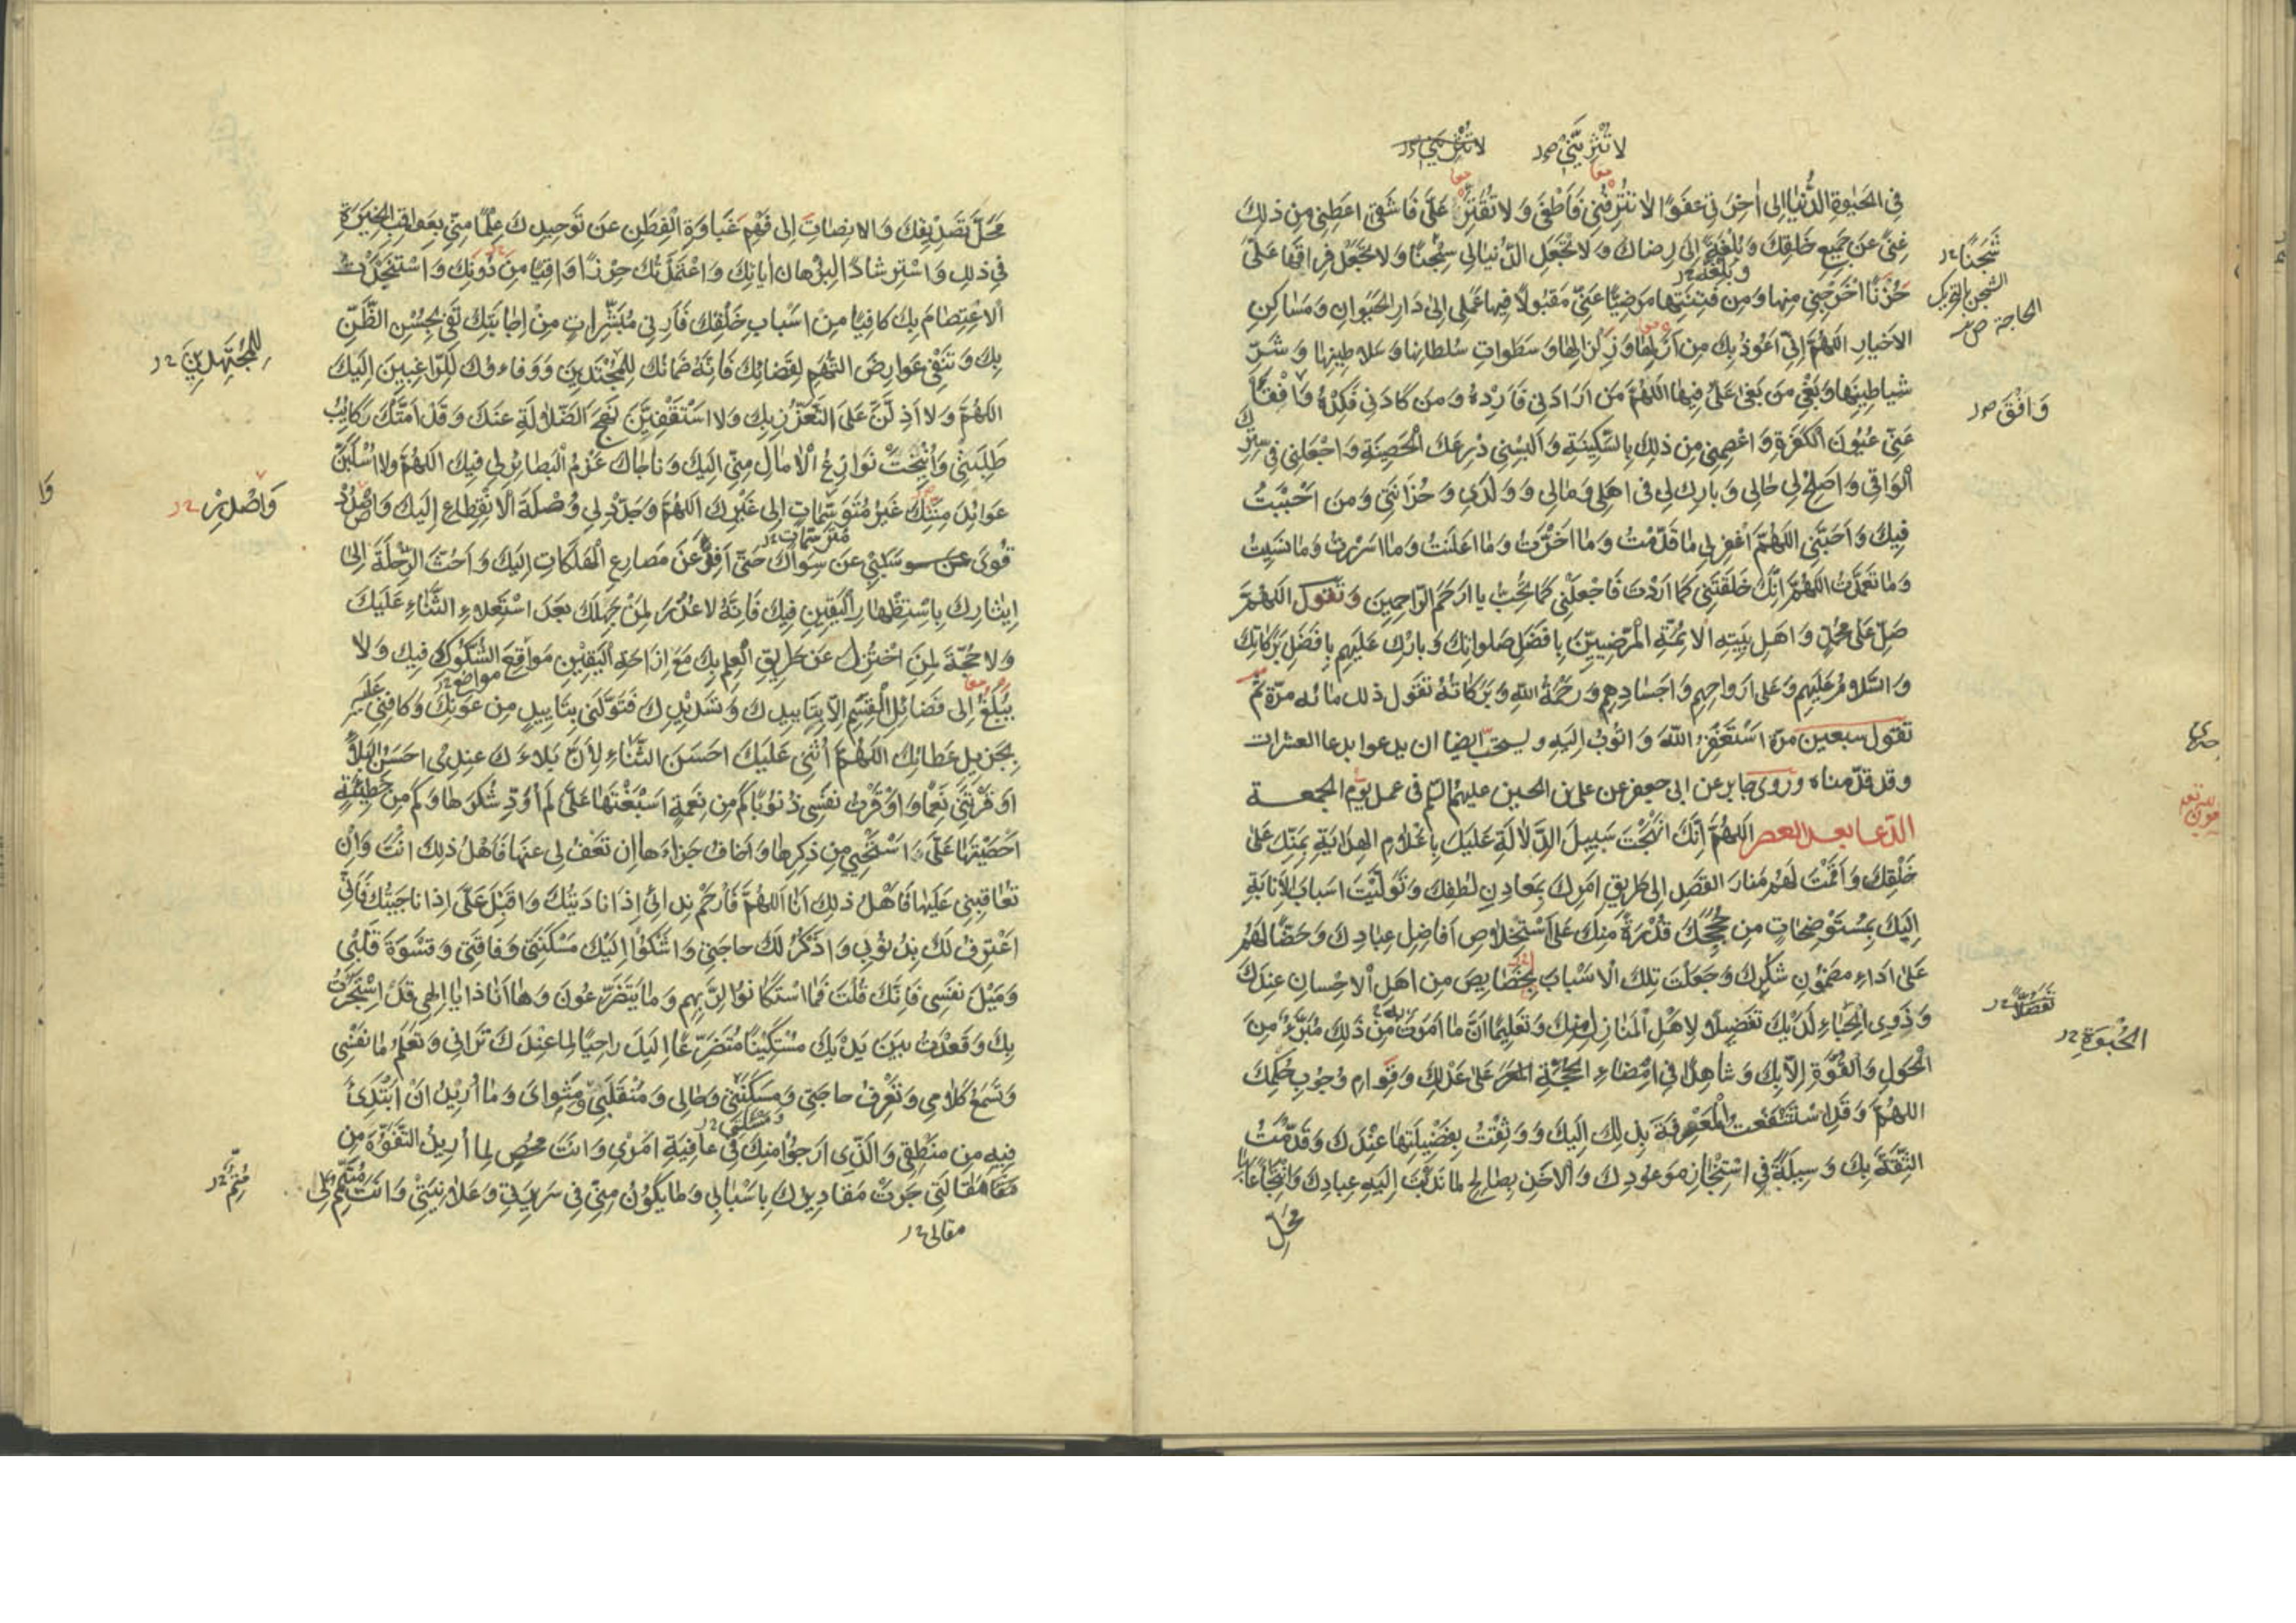 لا تثرينّي لا تثريني
في الحيوة الدنيا الى اخرتي عفوا لا تترفني فاطغى ولا تقتر علي فاشقى اعطني من ذلك
غنى عن جميع خلقك وبلغة الى رضاك ولا تجعل الدنيا لي سجنا ولا تجعل فراقها على
حزنا اخرجني منها ومن فتنتها مرضيا عني مقبولا فيها عملي الى دار الحيوان ومساكن
الاخيار اللهم اني اعوذ بك من ازلها وزلزالها وسطوات سلطانها وسلاطينها وشر
شياطينها وبغي من بغى على فيها اللهم من ارادني فارده ومن كادني فكده وافقأ
عني عيون الكفرة واعصمني من ذلك بالسكينة والبسني درعك الحصينة واجعلني في سترك
الواقي واصلح لي حالي وبارك لي في اهلي ومالي وولدي وحزانتي ومن احببت
فيك واحبني اللهم اغفر لي ما قدمت وما اخرت وما اعلنت وما اسررت وما نسيت
وما تعمدت اللهم انك خلقتني كما اردت فاجعلني كما تحب يا ارحم الراحمين وتقول اللهم
صل على محمد واهل بيته الائمة المرضيين بافضل صلواتك وبارك عليهم بافضل بركاتك
والسلام عليهم وعلى ارواحهم واجسادهم ورحمة الله وبركاته تقول ذلك مائه مرة ثم
تقول سبعين مرة استغفر الله واتوب اليه ويستحب ايضا ان يدعوا بدعا العشرات
وقد قدمناه وروى جابر عن ابي جعفر عن علي بن الحسين عليهم السلم في عمل يوم الجمعة
الدعا بعد العصر اللهم انك انهجت سبيل الدلالة عليك باعلام الهداية بمنك على
خلقك واقمت لهم منار القصد الى طريق امرك بمعادن لطفك وتوليت اسباب الانابة
اليك بمستوضحات من حججك قدرة منك على استخلاص افاضل عبادك وحضا لهم
على اداء مضمون شكرك وجعلت تلك الاسباب لخصايص من اهل الاحسان عندك
وذوي الحباء لديك تفضيلا لاهل المنازل منك وتعليما ان ما امرت من ذلك مبرء من
الحول والقوة الا بك وشاهدا في امضاء الحجة على عدلك وقوام وجوب حكمك
اللهم وقد استشفعت المعرفة بذلك اليك ووثقت بفضيلتها عندك وقدمت
الثقة بك وسيلة في استنجاز موعودك والاخذ بصالح ما ندبت اليه عبادك وانتجاعا بها
محل
شجنا
الشجن التحريك
الحاجة ص
وافق
تفضلا
الحبوة
محل تصديقك والانصات الى فهم غباوة الفطن عن توحيدك علما مني بعواقب الخيرة
في ذلك واسترشادا لبرهان اياتك واعتمدتك حرزا واقيا من دونك واستنجدت
الاعتصام بك كافيا من اسباب خلقك فارني مبشرات من اجابتك تفي بحسن الظن
بك وتنفي عوارض التهم لقضائك فانه ضمانك للمجتدين ووفاءوك للراغبين اليك
اللهم ولا اذلن على التعزز بك ولا استقفين نهج الضلالة عنك وقد امتك ركائب
طلبتي وانيخت نوازع الامال مني اليك وناجاك عزم البصائر لي فيك اللهم ولا اسلبن
عوائد مننك غير متوسمات الى غيرك اللهم وجدد لي وصلة الانقطاع اليك واصدد
قوى سببي عن سواك حتى افر عن مصارع الهلكات اليك واحث الرحلة الى
ايثارك باستظهار اليقين فيك فانه لا عذر لمن جهلك بعد استعلاء الثناء عليك
ولا حجة لمن اختزل عن طريق العلم بك مع ازاحة اليقين مواقع الشكوك فيك ولا
يبلغ الى فضائل القسم الا بتاييدك وتسديدك فتولني بتاييد من عونك وكافني عليه
بجزيل عطائك اللهم اثني عليك احسن الثناء لان بلاءك عندي احسن البلاء
اوقرتني نعما واوقرت نفسي ذنوبا كم من نعمة اسبغتها على لم اؤد شكرها وكم من خطيئة
احصيتها على استحيي من ذكرها واخاف جزاءها ان تعف لي عنها فاهل ذلك انت وان
تعاقبني عليها فاهل ذلك انا اللهم فارحم ندائي اذا ناديتك واقبل على اذا ناجيتك فاني
اعترف لك بذنوبي واذكر لك حاجتي واشكوا اليك مسكنتي وفاقتي وقسوة قلبي
وميل نفسي فانك قلت فما استكانوا لربهم وما يتضرعون وها انا ذا يا الهي قد استجرت
بك وقعدت بين يديك مستكينا متضرعا اليك راجيا لما عندك تراني وتعلم ما نفسي
وتسمع كلامي وتعرف حاجتي ومسكنتي وحالي ومنقلبي ومثواى وما اريد ان ابتدئ
فيه من منطقي والذي ارجوا منك في عاقبة امري وانت محص لما اريد التفوه من
مقالتي جرت مقاديرك باسبابي وما يكون مني في سريرتي وعلانيتي وانت متمم لى
مقالى
للمجتهدين
واصلر
متم
وا